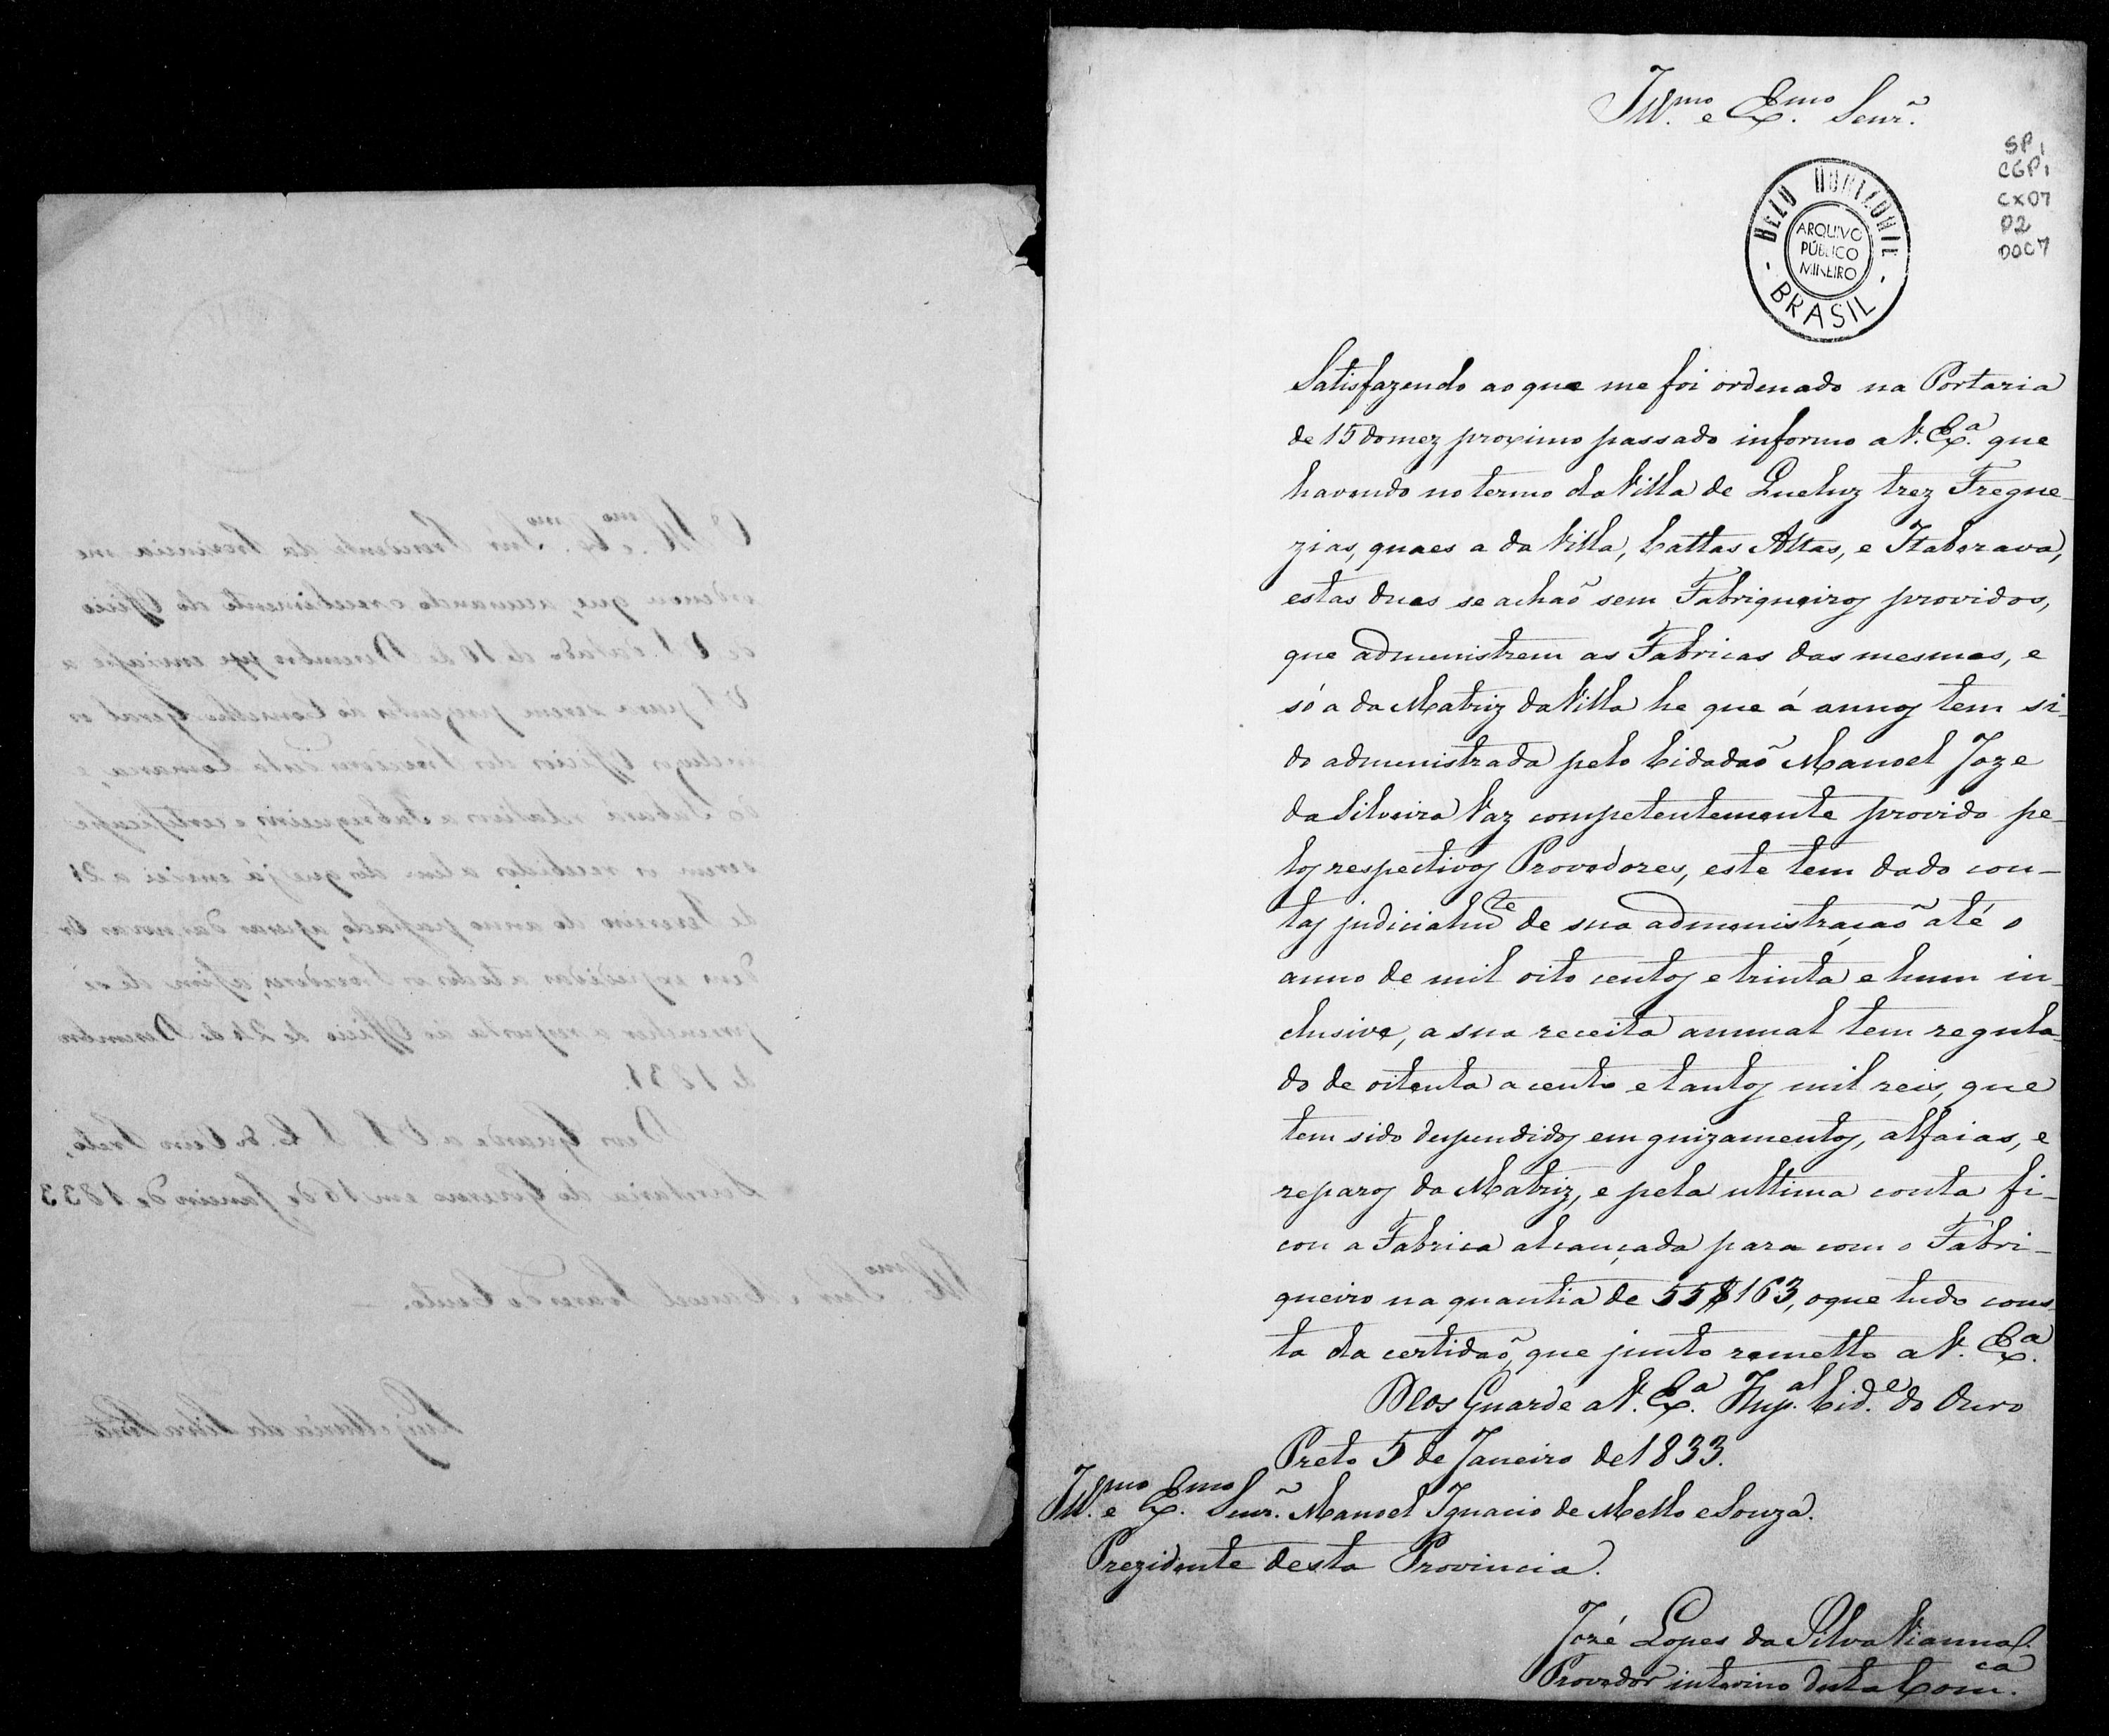 Ill.mo e Ex.mo Senr.
SP1
CGP1
CX07
P2
DOC7
BELO HORIZONTE
ARQUIVO
PÚBLICO
MINEIRO
- BRASIL -
Satisfazendo ao que me foi ordenado na Portaria
de 15 do mez proximo passado informo a V. Ex.a que
havendo no termo da Villa de Queluz trez Fregue-
zias, quaes a da Villa, Cattas Altas, e Itaberava,
estas duas se achaõ sem Fabriqueiros providos,
que administrem as Fabricas das mesmas, e
só a da Matriz da Villa he que á annos tem si-
do administrada pelo Cidadaõ Manoel Joze
da Silveira Vaz competentemente provido pe-
los respectivos Provedores, este tem dado con-
tas judicialm.te de sua administraçaõ até o
anno de mil oito centos e trinta e hum in-
clusive, a sua receita annual tem regula-
do de oitenta a cento e tantos mil reis, que
tem sido despendidos em guizamentos, alfaias, e
reparos da Matriz, e pela ultima conta fi-
cou a Fabrica alcançada para com o Fabri-
queiro na quantia de 55$163, oque tudo cons-
ta da certidaõ, que junto remetto a V. Ex.a
Deos Guarde a V. Ex.a Imp.al Cid.e do Ouro
Preto 5 de Janeiro de 1833.
Ill.mo e Ex.mo Senr. Manoel Ignacio de Mello e Souza.
Prezidente desta Provincia.
José Lopes da Silva Vianna
Provedor interino desta Com.ca
O Ill.mo e Ex.mo Snr Presidente da Provincia me
ordenou que, accusando o recebimento do Officio
de V. S. datado de 10 de Dezembro pp enviasse a
V S para serem prezentes ao Conselho Geral os
incluzos Officios dos Provedores desta Comarca, e
do Sabará relativos a Fabriqueiros, e certificasse
serem os recebidos alem dos que já enviei a 21
de Fevereiro do anno passado, apezar das novas Or-
dens expedidas a todos os Provedores, afim de se
preencher a resposta ao Officio de 24 de Dezembro
de 1831.
Deos Guarde a V. S. I. C. do Ouro Preto,
Secretaria do Governo em 16 de Janeiro de 1833
Ill.mo Snr. Manoel Soares do Couto.
Luiz Maria da Silva Pinto